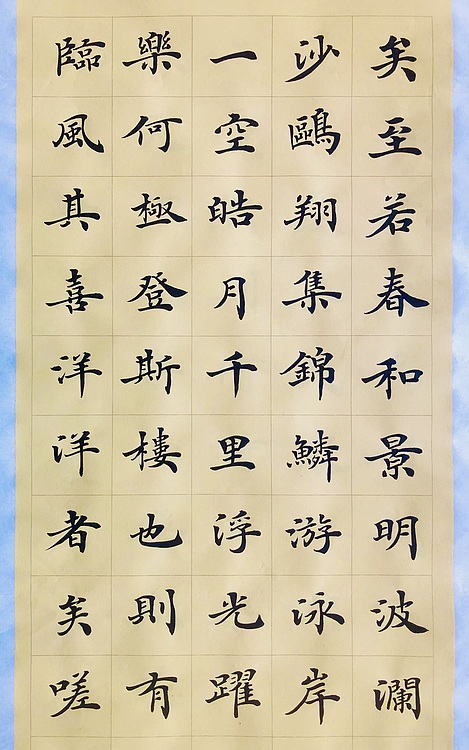 矣至若春和景明波瀾
沙鷗翔集錦鱗游泳岸
一空皓月千里浮光躍
樂何極登斯樓也則有
臨風其喜洋洋者矣嗟